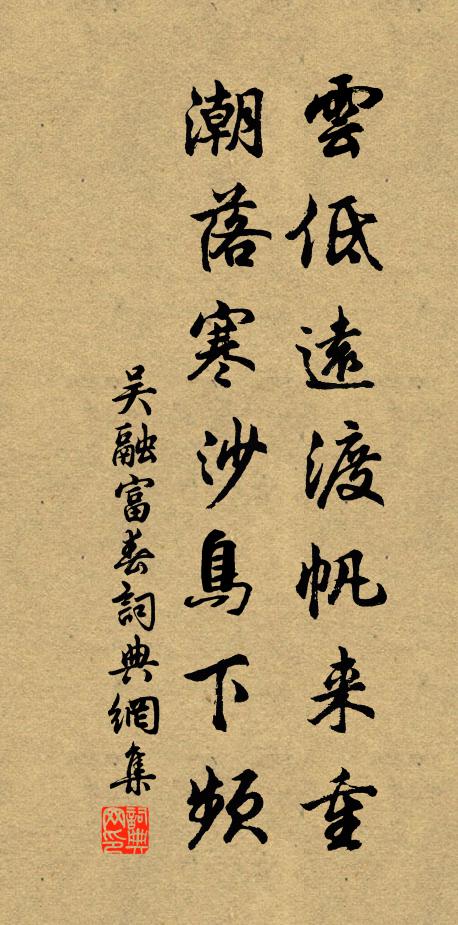 雲低遠渡帆来重
潮落寒沙鳥下頻
吴融富春詞典網集
詞典網印